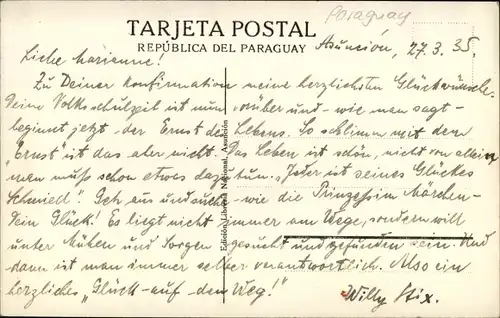 Paraguay
TARJETA POSTAL
REPÚBLICA DEL PARAGUAY
Asunción, 27.3.35.
Liebe Marianne!
Zu Deiner Konfirmation meine herzlichsten Glückwünsche.
Deine Volksschulzeit ist nun vorüber und - wie man sagt -
beginnt jetzt der Ernst des Lebens. So schlimm mit dem
"Ernst" ist das aber nicht. Das Leben ist schön, nicht von allein
man muss schon etwas dazu tun. "Jeder ist seines Glückes
Schmied"! Geh aus und suche - wie die Prinzessin im Märchen -
Dein Glück! Es liegt nicht immer am Wege, sondern will
unter Mühen und Sorgen gesucht und gefunden sein. Und
dann ist man immer selber verantwortlich. Also ein
herzliches "Glück - auf - den Weg!"
Willy Stix.
Edición Librería Nacional, Asunción